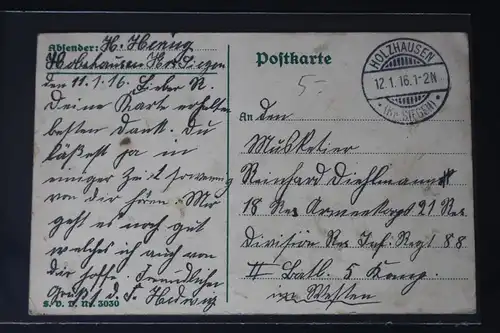 Absender: H. Hennig
Holzhausen Krs Siegen
den 11.1.16. Lieber R.
Deine Karte erhalten
besten Dank. Du
läßest ja in
einiger Zeit so wenig
von dir hören. Mir
geht es noch gut
welches ich auch von
dir hoffe. Freundlichen
Gruß d. F. Hedwig
S. V. D. Nr. 3030
Postkarte
5-
HOLZHAUSEN
12.1.16.1-2N
(Kr. SIEGEN)
An den
Musketier
Reinhard Diehlmann
18 Res Armeekorps 21 Res
Division Res Inf. Regt 88
II Batl. 5 Komp.
im Westen